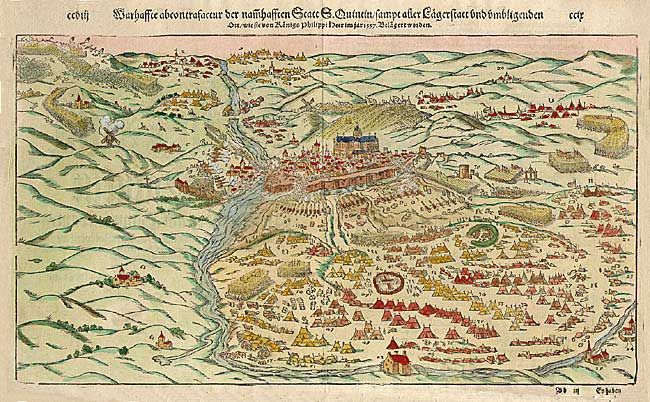 ccviij Warhaffte abcontrafactur der namhafften Statt S. Quintin/ sampt aller Lägerstatt vnd vmbligenden ccix
Ort/ wie sie von Königs Philippi Heer im jar 1557. Belägert worden.
Dd iij Erhaben